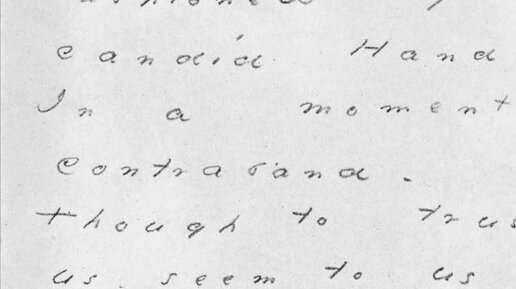 candid Hand
In a moment
contraband.
though to trus
us. seem to us